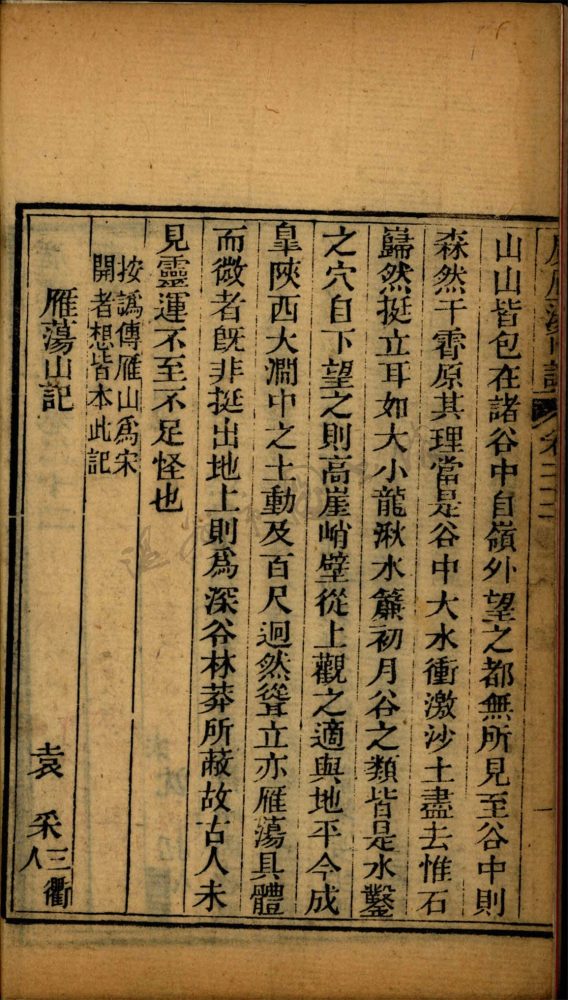 山山皆包在諸谷中自嶺外望之都無所見至谷中則
森然干霄原其理當是谷中大水衝激沙土盡去惟石
巋然挺立耳如大小龍湫水簾初月谷之類皆是水鑿
之穴自下望之則高崖峭壁從上觀之適與地平今成
臯陝西大澗中之土動及百尺迴然聳立亦雁蕩具體
而微者旣非挺出地上則爲深谷林莽所蔽故古人未
見靈運不至不足怪也
按譌傳雁山爲宋
開者想皆本此記
雁蕩山記
袁采三衢人